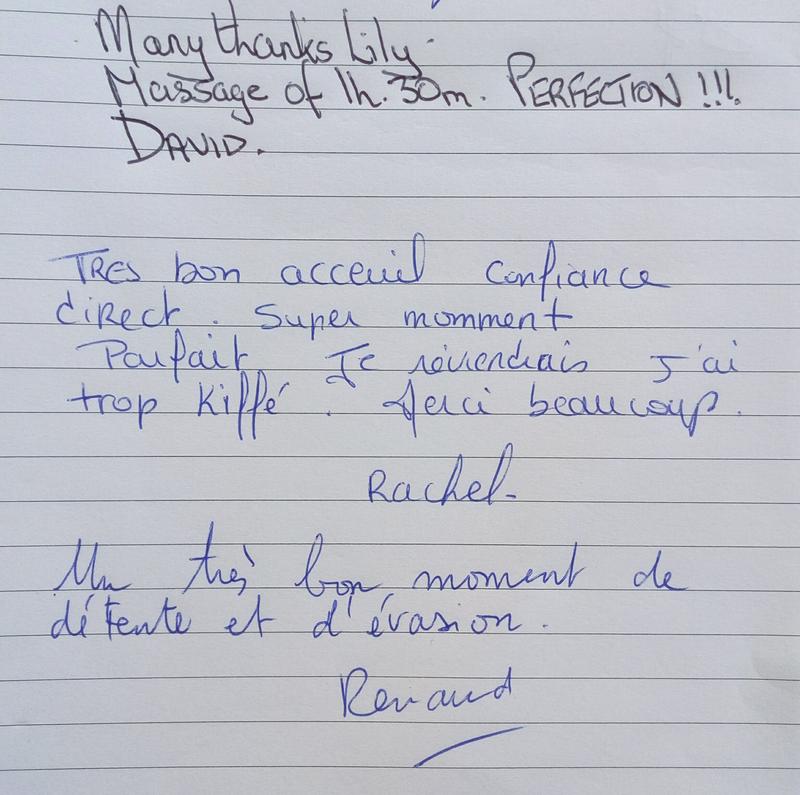 Many thanks Lily.
Massage of 1h.30m. PERFECTION !!!.
DAVID.
TRES bon acceuil confiance
direct. Super momment
Parfait Je reviendrais J'ai
trop Kiffé. Merci beaucoup.
Rachel-
Un très bon moment de
détente et d'évasion.
Renaud